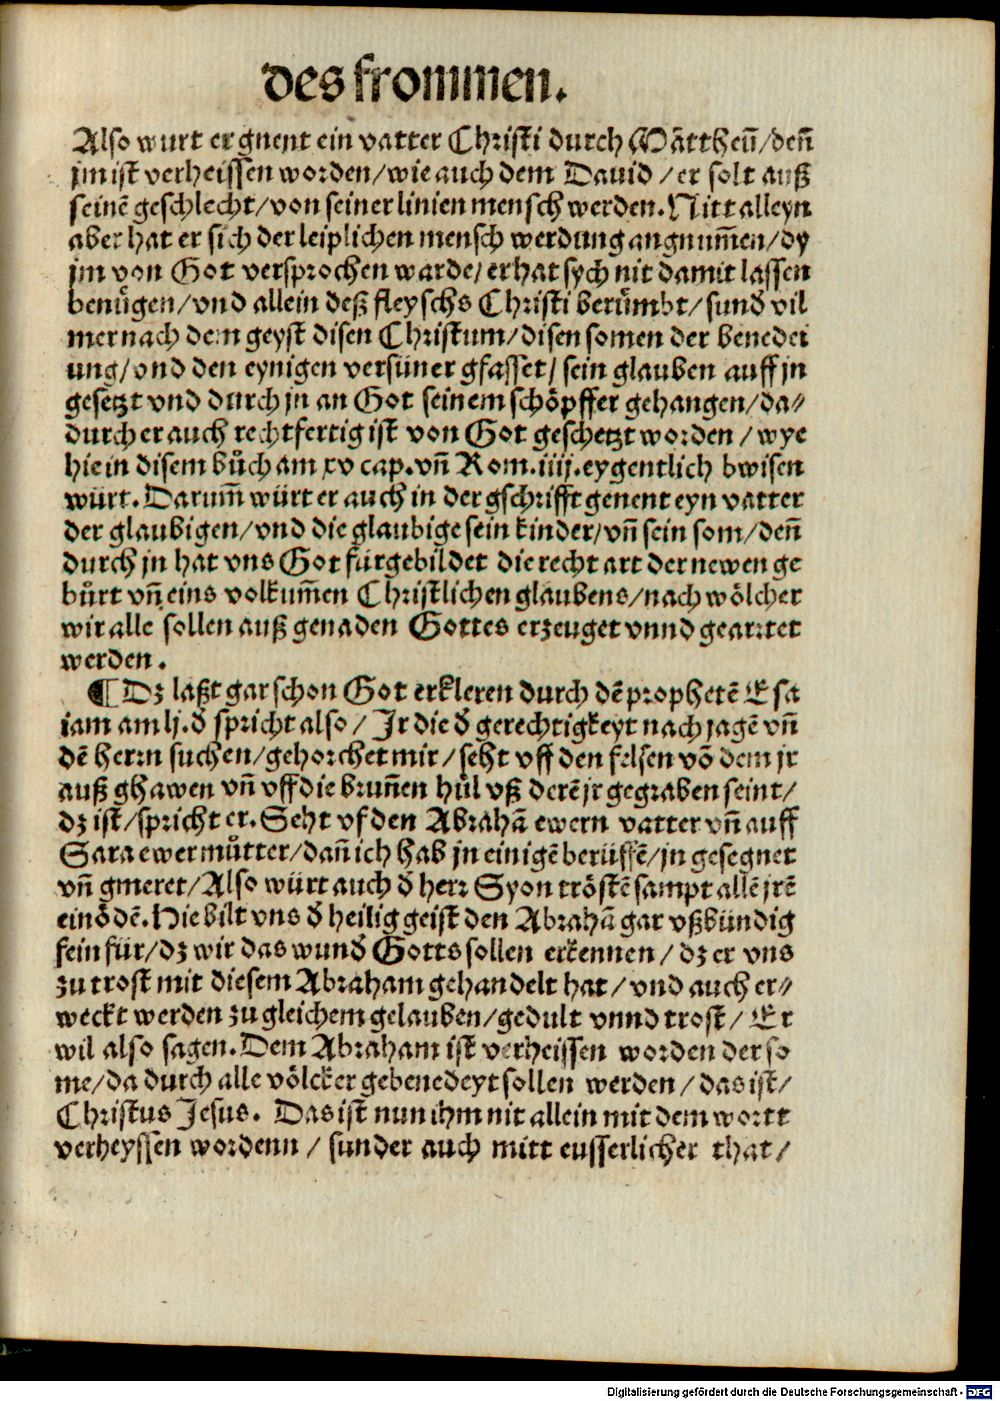 des frommen.
Also wurt er gnent ein vatter Christi durch Mattheū/deñ
jm ist verheissen worden/wie auch dem Dauid/er solt auß
seinē geschlecht/von seiner linien mensch werden. Nitt alleyn
aber hat er sich der leiplichen mensch werdung angnum̄en/dy
jm von Got versprochen warde/er hat sych nit damit lassen
benuͤgen/vnd allein deß fleyschs Christi beruͤmbt/sund̄ vil
mer nach dem geyst disen Christum/disen somen der benedei
ung/vnd den eynigen versüner gfasset/sein glauben auff jn
gesetzt vnd durch jn an Got seinem schöpffer gehangen/da⸗
durch er auch rechtfertig ist von Got geschetzt worden/wye
hie in disem bůch am xv cap. vñ Rom. iiij. eygentlich bwisen
würt. Darum̄ würt er auch in der gschrifft genent eyn vatter
der glaubigen/vnd die glaubige sein kinder/vñ sein som/deñ
durch jn hat vns Got fürgebildet die recht art der newen ge
bůrt vñ eins volkum̄en Christlichen glaubens/nach wölcher
wir alle sollen auß genaden Gottes erzeuget vnnd geartet
werden.
¶ Dz laßt gar schon Got erkleren durch dē prophetē Esa
iam am lj. d̄ spricht also/Ir die d̄ gerechtigkeyt nach jagē vñ
dē herrn suchen/gehorchet mir/seht vff den felsen vō dem jr
auß ghawen vñ vff die brun̄en hül vß derē jr gegraben seint/
dz ist/spricht er. Seht vf den Abrahā ewern vatter vñ auff
Sara ewer můtter/dañ ich hab jn einigē berüffē/jn gesegnet
vñ gmeret/Also würt auch d̄ herr Syon tröstē sampt allē jrē
einödē. Hie bilt vns d̄ heilig geist den Abrahā gar vßbündig
fein für/dz wir das wund̄ Gotts sollen erkennen/dz er vns
zu trost mit diesem Abraham gehandelt hat/vnd auch er⸗
weckt werden zu gleichem gelauben/gedult vnnd trost/Er
wil also sagen. Dem Abraham ist verheissen worden der so
me/da durch alle völcker gebenedeyt sollen werden/das ist/
Christus Jesus. Das ist nun ihm nit allein mit dem wortt
verheyssen wordenn/sunder auch mitt eusserlicher that/
Digitalisierung gefördert durch die Deutsche Forschungsgemeinschaft - DFG